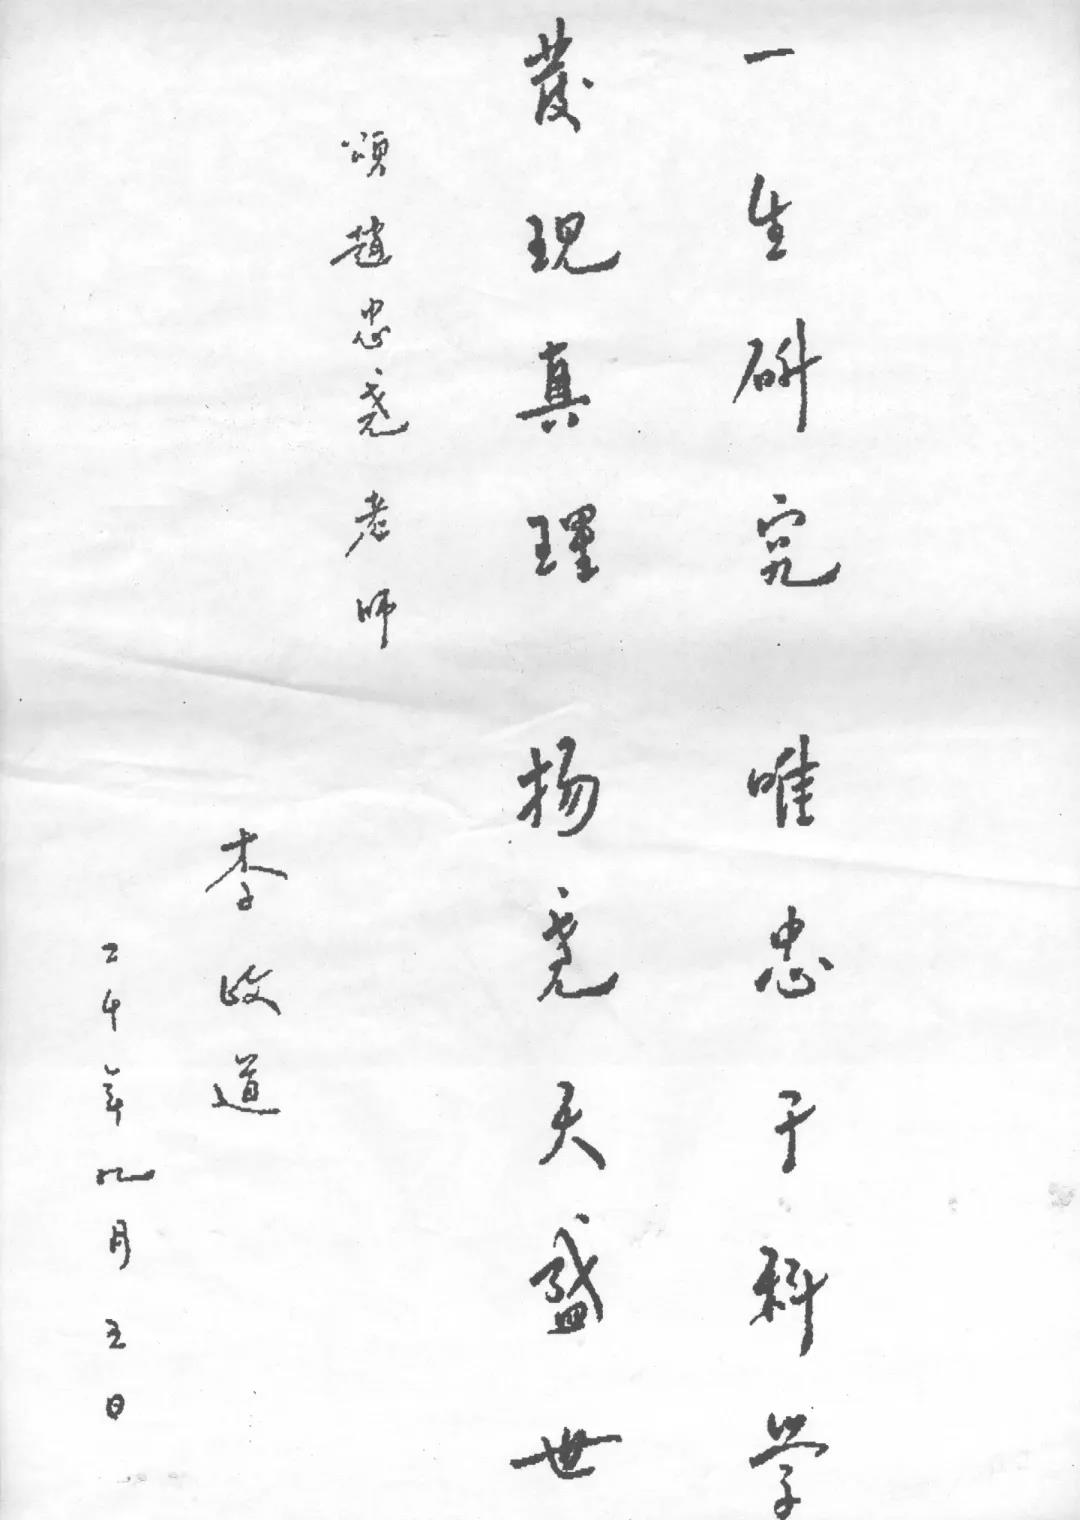 一生研究 唯忠于科学
發现真理 扬尧天盛世
頌趙忠尧老师
李政道
二千年九月五日